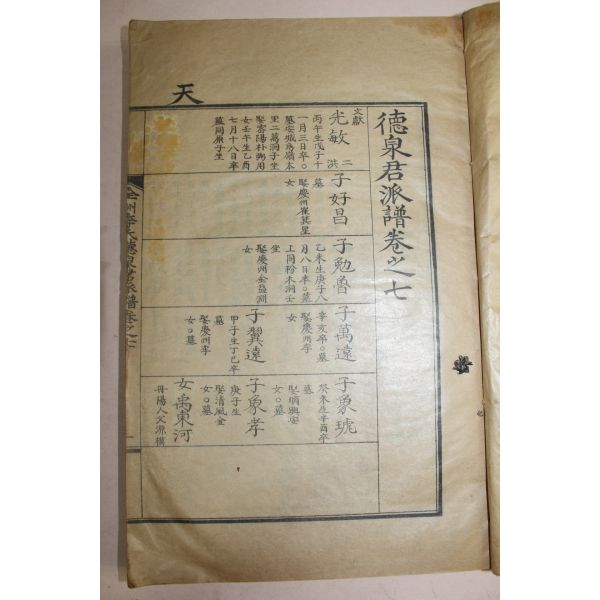 天
德泉君派譜卷之七
文獻
光敏 二
洪
丙午生戊子十
一月三日卒○
墓安城
里二萬洞子坐
娶雲陽朴弼用
女壬午生乙酉
七月十八日卒
墓同原子坐
子好昌
墓
娶慶州崔箕星
女
子勉魯
乙未生庚子八
月八日卒○墓
上同粉木洞壬
坐
娶慶州金益淵
女
子萬遠
辛亥卒○墓
娶慶州李
女
子翼遠
甲子生丁巳卒
墓
娶慶州李
女○墓
子象琥
癸未生辛酉卒
墓
娶順興安
女○墓
子象孝
庚子生
娶清風金
女○墓
女禹東河
丹陽人父源模
全州李氏德泉君派譜卷之七
一